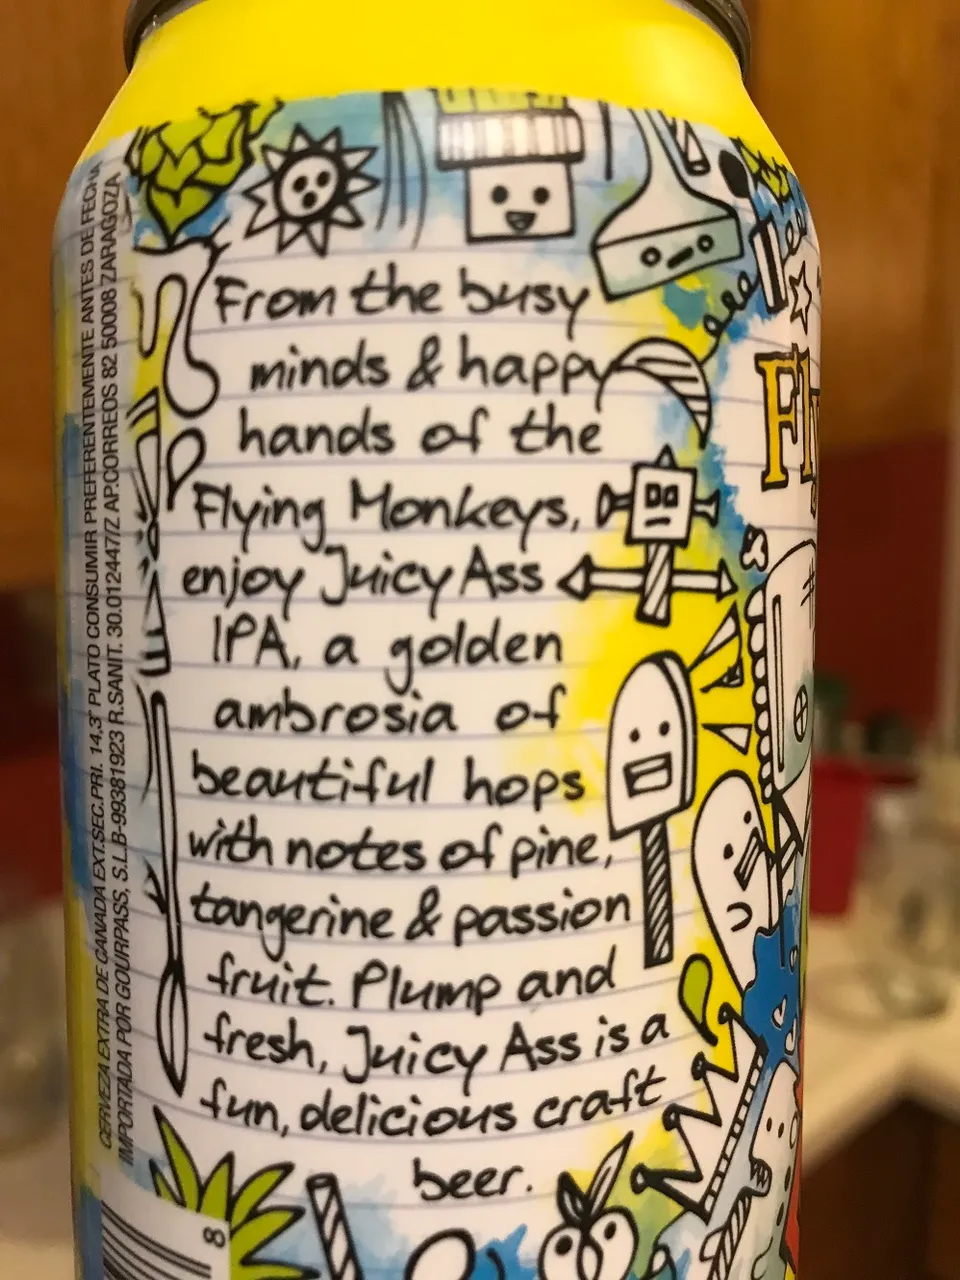 From the busy
minds & happy
hands of the
Flying Monkeys,
enjoy Juicy Ass
IPA, a golden
ambrosia of
beautiful hops
with notes of pine,
tangerine & passion
fruit. Plump and
fresh, Juicy Ass is a
fun, delicious craft
beer.
CERVEZA EXTRA DE CANADA EXT.SEC.PRI. 14,3° PLATO CONSUMIR PREFERENTEMENTE ANTES DE FECHA
IMPORTADA POR GOURPASS, S.L.B-99381923 R.SANIT. 30.012447/Z AP.CORREOS 82 50008 ZARAGOZA
8